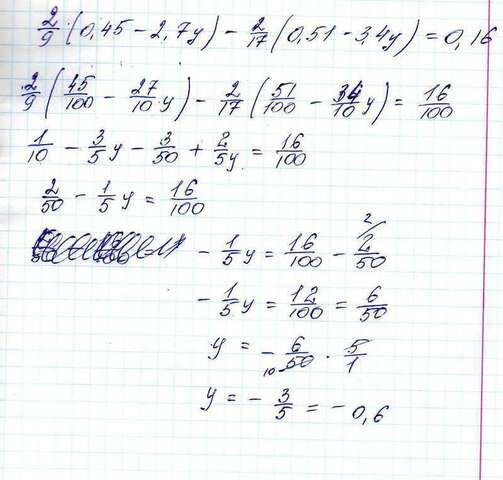 2/9 · (0,45 − 2,7y) − 2/17 (0,51 − 3,4y) = 0,16
2/9 (45/100 − 27/10 y) − 2/17 (51/100 − 34/10 y) = 16/100
1/10 − 3/5 y − 3/50 + 2/5 y = 16/100
2/50 − 1/5 y = 16/100
− 1/5 y = 16/100 − 2/50 2/
− 1/5 y = 12/100 = 6/50
y = − 6/50 · 5/1 10
y = − 3/5 = − 0,6